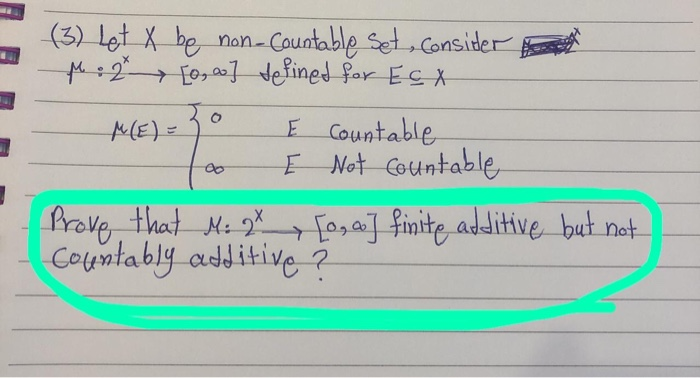 (3) Let X be non-Countable Set, Consider
μ : 2^X → [0,∞] defined for E ⊆ X
μ(E) = { 0 E Countable
∞ E Not Countable
Prove that μ: 2^X → [0,∞] finite additive but not
Countably additive ?